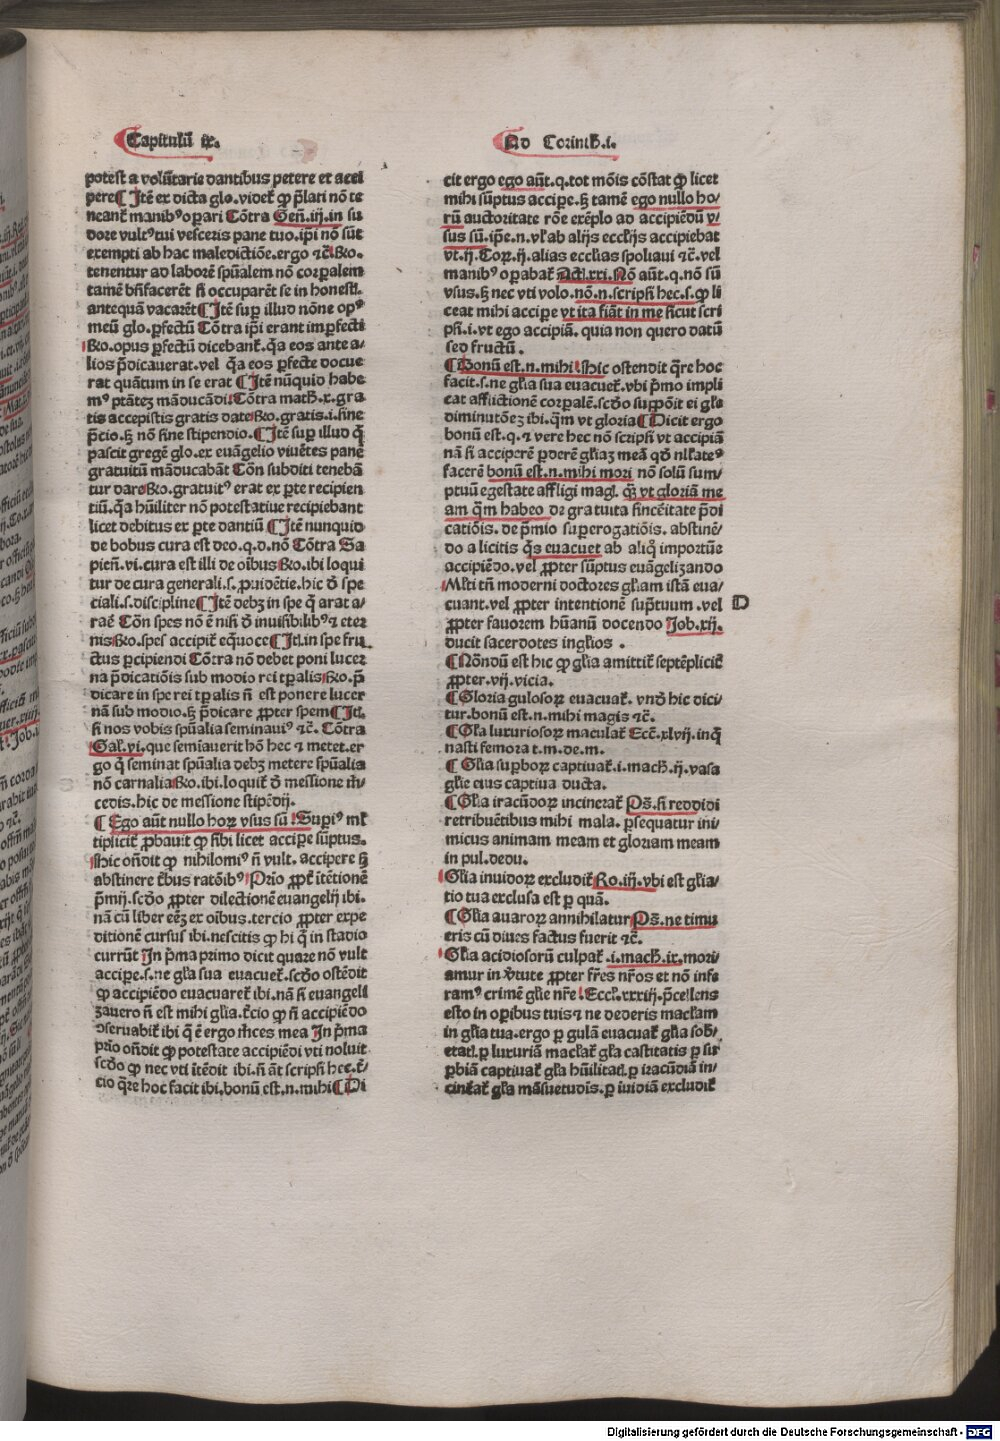 Capitulū ix.
Ad Corinth̄.i.
potest a volūtarie dantibus petere et acci
pere ¶ Itē ex dicta glo. videt̄ ꝙ p̄lati nō te
neant̄ manibꝰ oꝑari Cōtra Gen̄.iij.in su
dore vultꝰ tui vesceris pane tuo.ip̄i nō sūt
exempti ab hac maledictiōe.ergo ⁊c̄ Rꝰo.
tenentur ad laborē spūalem nō corꝑalem
tamē bn̄facerēt si occuparēt se in honesti.
antequā vacarēt ¶ Itē suꝑ illud nōne opꝰ
meū glo.ꝑfectū Cōtra ip̄i erant imꝑfecti
Rꝰo.opus ꝑfectū dicebant̄.q̄a eos ante a⸗
lios p̄dicauerat.vel q̄a eos ꝑfecte docue
rat quātum in se erat ¶ Itē nūquid habe
mꝰ ptātez māducādi Cōtra math̄.x.gra
tis accepistis gratis date Rꝰo.gratis.i.sine
p̄cio.hꝫ nō sine stipendio. ¶ Itē suꝑ illud q̄
pascit gregē glo.ex euāgelio viuētes panē
gratuitū māducabāt Cōn̄ subditi tenebā
tur dare Rꝰo.gratuitꝰ erat ex ꝑte recipien
tiū.q̄a hūiliter nō potestatiue recipiebant
licet debitus ex ꝑte dantiū ¶ Itē nunquid
de bobus cura est deo.q.d.nō Cōtra Sa
pien̄.vi.cura est illi de oībus Rꝰo.ibi loqui
tur de cura generali.s.ꝓuidētie.hic d̄ spe
ciali.s.discipline ¶ Itē debꝫ in spe q̄ arat a⸗
rae̅ Cōn̄ spes nō ē nisi d̄ inuisibilibꝰ ⁊ eter
nis Rꝰo.spes accipit̄ eq̄uoce ¶ Itl̄.in spe fru
ctus ꝑcipiendi Cōtra nō debet poni lucer
na p̄dicatiōis sub modio rei tꝑalis Rꝰo.p̄
dicare in spe rei tꝑalis n̄ est ponere lucer
nā sub modio.hꝫ p̄dicare ꝓpter spem ¶ Itl̄.
si nos vobis spūalia seminauiꝰ ⁊c̄. Cōtra
Gal̄.vi.que semiauerit hō hec ⁊ metet.er
go q̄ seminat spūalia debꝫ metere spūalia
nō carnalia Rꝰo.ibi.loquit̄ d̄ messione m̄
cedis.hic de messione stipēdij.
¶ Ego aūt nullo hoꝝ vsus sū Suꝑiꝰ ml̄
tiplicit̄ ꝓbauit ꝙ sibi licet acciꝑe sūptus.
hic on̄dit ꝙ nihilomiꝰ n̄ vult. accipere hꝫ
abstinere t̄bus ratōibꝰ Prīo ꝓpt̄ itētionē
p̄mij.scd̄o ꝓpter dilectionē euangelij ibi.
nā cū liber eēꝫ ex oībus.tercio ꝓpter expe
ditionē cursus ibi.nescitis ꝙ hi q̄ in stadio
currūt In p̄ma primo dicit quare nō vult
acciꝑe.s.ne gl̄ia sua euacuet̄.scd̄o ostēdit
ꝙ accipiēdo euacuaret̄ ibi.nā si euangeli
zauero n̄ est mihi gl̄ia.t̄cio ꝙ n̄ accipiēdo
ꝯseruabit̄ ibi q̄ ē ergo m̄ces mea In p̄ma
prīo on̄dit ꝙ potestate accipiēdi vti noluit
scd̄o ꝙ nec vti itēdit ibi.n̄ āt scripsi hec.t̄⸗
cio q̄re hoc facit ibi.bonū est.n.mihi ¶ Di
cit ergo ego aūt.q.tot mōis cōstat ꝙ licet
mihi sūptus accipe.hꝫ tamē ego nullo ho⸗
rū auctoritate rōe exēplo ad accipiēdū v⸗
sus sū.ip̄e.n.vl̄ ab alijs eccl̄ijs accipiebat
vt.ij.Coꝝ.ij.alias ecclias spoliaui ⁊c̄.vel
manibꝰ oꝑabat̄ Act̄.xxi.Nō aūt.q.nō sū
vsus.hꝫ nec vti volo.nō.n.scripsi hec.s.ꝙ li
ceat mihi acciꝑe vt ita fiāt in me sicut scri
psi.i.vt ego accipiā.quia non quero datū
sed fructū.
¶ Bonū est.n.mihi hic ostendit q̄re hoc
facit.s.ne gl̄ia sua euacuet̄.vbi p̄mo impli
cat afflictionē corꝑalē.scd̄o suꝑpōit ei gl̄e
diminutōez ibi.q̄m vt gloria ¶ Dicit ergo
bonū est.q.⁊ vere hec nō scripsi vt accipiā
nā si acciperē ꝑderē gl̄iaꝫ meā qd̄ nl̄late⸗
facerē bonū est.n.mihi mori nō solū sum⸗
ptuū egestate affligi magl. qꝫ vt gloriā me
am q̄m habeo de gratuita sincēitate p̄di
catiōis.de p̄mio suꝑerogatiōis.abstinē⸗
do a licitis q̄s euacuet ab aliq̄ importūe
accipiēdo.vel ꝓpter sūptus euāgelizando
Ml̄ti tn̄ moderni doctores gl̄iam istā eua⸗
cuant.vel ꝓpter intentionē suꝑtuum.vel
D
ꝓpter fauorem hūanū docendo Job.xij.
ducit sacerdotes inglīos.
¶ Nōndū est hic ꝙ gl̄ia amittit̄ septēplicit̄
ꝓpter.vij.vicia.
¶ Gloria gulosoꝝ euacuat̄. vnd̄ hic dici⸗
tur.bonū est.n.mihi magis ⁊c̄.
¶ Gl̄ia luxuriosoꝝ maculat̄ Ecc̄.xlvij.inq̄
nasti femora t.m.de.m.
¶ Gl̄ia suꝑboꝝ captiuat̄.i.mach̄.ij.vasa
gl̄ie eius captiua ducta.
¶ Gl̄ia iracūdoꝝ incinerat̄ Ps̄.si reddidi
retribuētibus mihi mala. ꝑsequatur ini⸗
micus animam meam et gloriam meam
in pul.dedu.
Gl̄ia inuidoꝝ excludit̄ Ro.iij.vbi est gl̄ia⸗
tio tua exclusa est ꝑ quā.
¶ Gl̄ia auaroꝝ annihilatur Ps̄.ne timu
eris cū diues factus fuerit ⁊c̄.
Gl̄ia acidiosorū culpat̄.i.mach̄.ix.mori⸗
amur in v̄tute ꝓpter fr̄es nr̄os et nō infe
ramꝰ crimē gl̄ie nr̄e Eccl̄.xxxiij.p̄cellens
esto in oꝑibus tuis ⁊ ne dederis maclam
in gl̄ia tua.ergo ꝑ gulā euacuat̄ gl̄ia sob⸗
etatl.ꝑ luxuriā maclat̄ gl̄a castitatis ꝑ su
ꝑbiā captiuat̄ gl̄a hūilitatl.ꝑ iracūdiā in⸗
cinēat̄ gl̄a māsuetudis.ꝑ iuidiā excludit̄
Digitalisierung gefördert durch die Deutsche Forschungsgemeinschaft - DFG